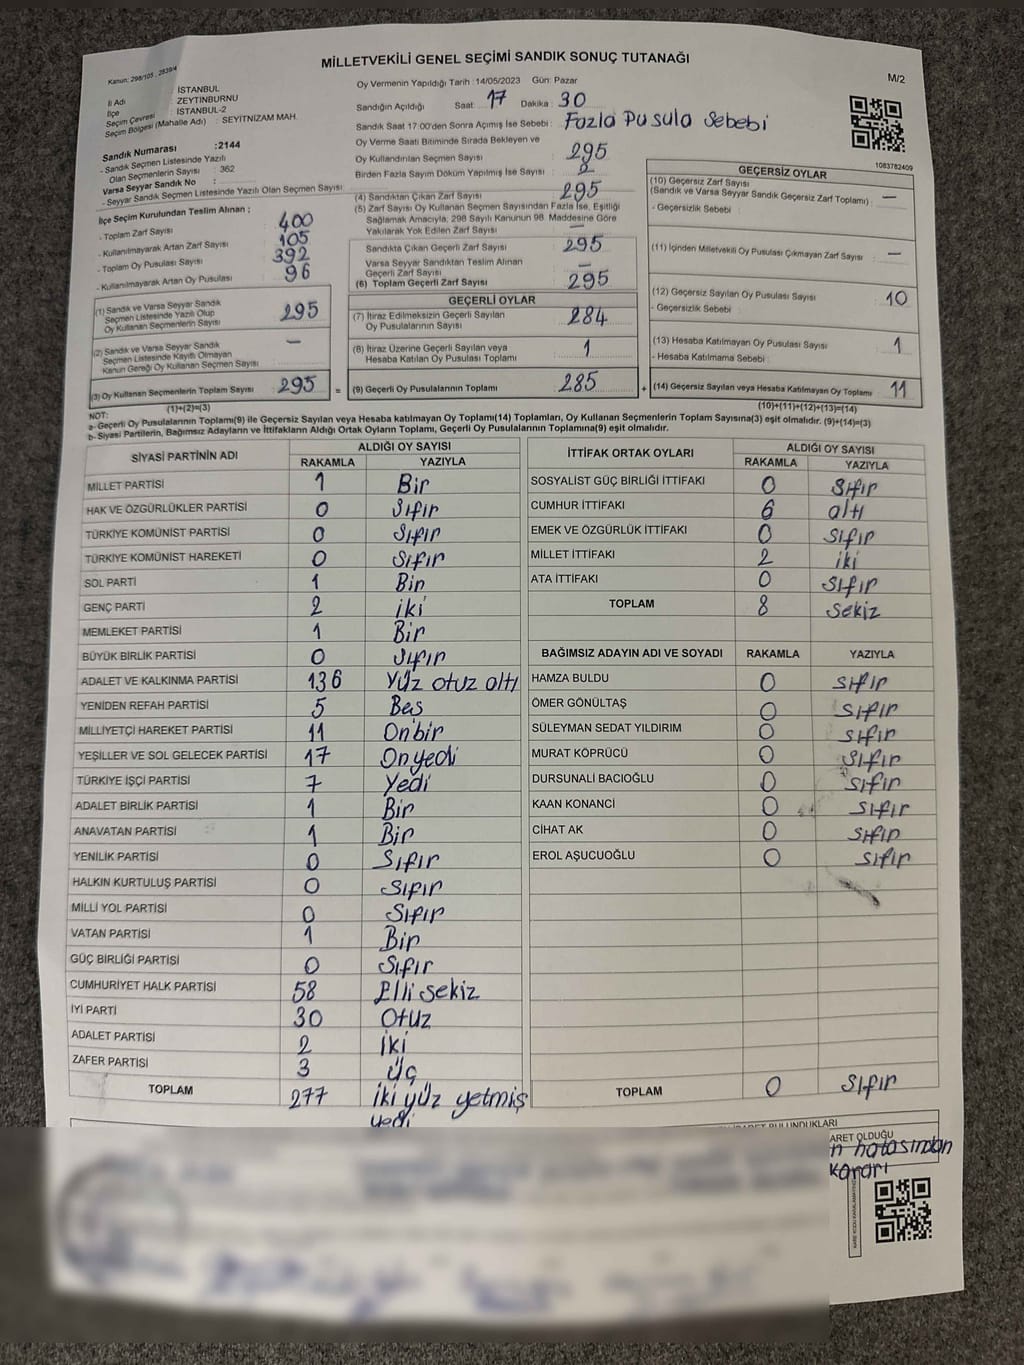 MİLLETVEKİLİ GENEL SEÇİMİ SANDIK SONUÇ TUTANAĞI
Kanun: 298/105 , 2839/4
M/2
İl Adı İSTANBUL
İlçe ZEYTİNBURNU
Seçim Çevresi İSTANBUL-2
Seçim Bölgesi (Mahalle Adı) : SEYİTNİZAM MAH.
Sandık Numarası :2144
- Sandık Seçmen Listesinde Yazılı
Olan Seçmenlerin Sayısı : 362
Varsa Seyyar Sandık No :
- Seyyar Sandık Seçmen Listesinde Yazılı Olan Seçmen Sayısı:
İlçe Seçim Kurulundan Teslim Alınan ;
- Toplam Zarf Sayısı : 400
- Kullanılmayarak Artan Zarf Sayısı : 105
- Toplam Oy Pusulası Sayısı : 392
- Kullanılmayarak Artan Oy Pusulası : 96
(1) Sandık ve Varsa Seyyar Sandık
Seçmen Listesinde Yazılı Olup
Oy Kullanan Seçmenlerin Sayısı : 295
(2) Sandık ve Varsa Seyyar Sandık
Seçmen Listesinde Kayıtlı Olmayan
Kanun Gereği Oy Kullanan Seçmen Sayısı : —
(3) Oy Kullanan Seçmenlerin Toplam Sayısı : 295 =
(1)+(2)=(3)
Oy Vermenin Yapıldığı Tarih : 14/05/2023 Gün: Pazar
Sandığın Açıldığı Saat: 17 Dakika : 30
Sandık Saat 17:00'den Sonra Açımış İse Sebebi : Fazla Pusula Sebebi
Oy Verme Saati Bitiminde Sırada Bekleyen ve
Oy Kullandırılan Seçmen Sayısı : 295
Birden Fazla Sayım Döküm Yapılmış İse Sayısı : 2
(4) Sandıktan Çıkan Zarf Sayısı : 295
(5) Zarf Sayısı Oy Kullanan Seçmen Sayısından Fazla İse, Eşitliği
Sağlamak Amacıyla, 298 Sayılı Kanunun 98. Maddesine Göre
Yakılarak Yok Edilen Zarf Sayısı : —
Sandıkta Çıkan Geçerli Zarf Sayısı : 295
Varsa Seyyar Sandıktan Teslim Alınan
Geçerli Zarf Sayısı : —
(6) Toplam Geçerli Zarf Sayısı : 295
GEÇERLİ OYLAR
(7) İtiraz Edilmeksizin Geçerli Sayılan
Oy Pusulalarının Sayısı : 284
(8) İtiraz Üzerine Geçerli Sayılan veya
Hesaba Katılan Oy Pusulası Toplamı : 1
(9) Geçerli Oy Pusulalarının Toplamı : 285 +
1083782409
GEÇERSİZ OYLAR
(10) Geçersiz Zarf Sayısı
(Sandık ve Varsa Seyyar Sandık Geçersiz Zarf Toplamı) : —
- Geçersizlik Sebebi :
(11) İçinden Milletvekili Oy Pusulası Çıkmayan Zarf Sayısı : —
(12) Geçersiz Sayılan Oy Pusulası Sayısı : 10
- Geçersizlik Sebebi :
(13) Hesaba Katılmayan Oy Pusulası Sayısı : 1
- Hesaba Katılmama Sebebi :
(14) Geçersiz Sayılan veya Hesaba Katılmayan Oy Toplamı : 11
(10)+(11)+(12)+(13)=(14)
NOT:
a- Geçerli Oy Pusulalarının Toplamı(9) ile Geçersiz Sayılan veya Hesaba katılmayan Oy Toplamı(14) Toplamları, Oy Kullanan Seçmenlerin Toplam Sayısına(3) eşit olmalıdır. (9)+(14)=(3)
b- Siyasi Partilerin, Bağımsız Adayların ve İttifakların Aldığı Ortak Oyların Toplamı, Geçerli Oy Pusulalarının Toplamına(9) eşit olmalıdır.
SİYASİ PARTİNİN ADI ALDIĞI OY SAYISI
RAKAMLA YAZIYLA
MİLLET PARTİSİ 1 Bir
HAK VE ÖZGÜRLÜKLER PARTİSİ 0 Sıfır
TÜRKİYE KOMÜNİST PARTİSİ 0 Sıfır
TÜRKİYE KOMÜNİST HAREKETİ 0 Sıfır
SOL PARTİ 1 Bir
GENÇ PARTİ 2 iki
MEMLEKET PARTİSİ 1 Bir
BÜYÜK BİRLİK PARTİSİ 0 Sıfır
ADALET VE KALKINMA PARTİSİ 136 Yüz otuz altı
YENİDEN REFAH PARTİSİ 5 Beş
MİLLİYETÇİ HAREKET PARTİSİ 11 Onbir
YEŞİLLER VE SOL GELECEK PARTİSİ 17 Onyedi
TÜRKİYE İŞÇİ PARTİSİ 7 Yedi
ADALET BİRLİK PARTİSİ 1 Bir
ANAVATAN PARTİSİ 1 Bir
YENİLİK PARTİSİ 0 Sıfır
HALKIN KURTULUŞ PARTİSİ 0 Sıfır
MİLLİ YOL PARTİSİ 0 Sıfır
VATAN PARTİSİ 1 Bir
GÜÇ BİRLİĞİ PARTİSİ 0 Sıfır
CUMHURİYET HALK PARTİSİ 58 Elli sekiz
İYİ PARTİ 30 Otuz
ADALET PARTİSİ 2 İki
ZAFER PARTİSİ 3 Üç
TOPLAM 277 İki yüz yetmiş
yedi
İTTİFAK ORTAK OYLARI ALDIĞI OY SAYISI
RAKAMLA YAZIYLA
SOSYALİST GÜÇ BİRLİĞİ İTTİFAKI 0 Sıfır
CUMHUR İTTİFAKI 6 altı
EMEK VE ÖZGÜRLÜK İTTİFAKI 0 Sıfır
MİLLET İTTİFAKI 2 iki
ATA İTTİFAKI 0 Sıfır
TOPLAM 8 Sekiz
BAĞIMSIZ ADAYIN ADI VE SOYADI RAKAMLA YAZIYLA
HAMZA BULDU 0 Sıfır
ÖMER GÖNÜLTAŞ 0 Sıfır
SÜLEYMAN SEDAT YILDIRIM 0 Sıfır
MURAT KÖPRÜCÜ 0 Sıfır
DURSUNALİ BACIOĞLU 0 Sıfır
KAAN KONANCİ 0 Sıfır
CİHAT AK 0 Sıfır
EROL AŞUCUOĞLU 0 Sıfır
TOPLAM 0 Sıfır
BULUNDUKLARI
ARET OLDUĞU
n hatasından
kararı